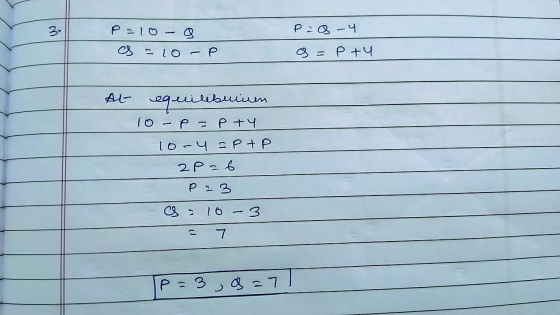 3. P = 10 - Q P = Q - 4
Q = 10 - P Q = P + 4
At equilibrium
10 - P = P + 4
10 - 4 = P + P
2P = 6
P = 3
Q = 10 - 3
= 7
P = 3 , Q = 7